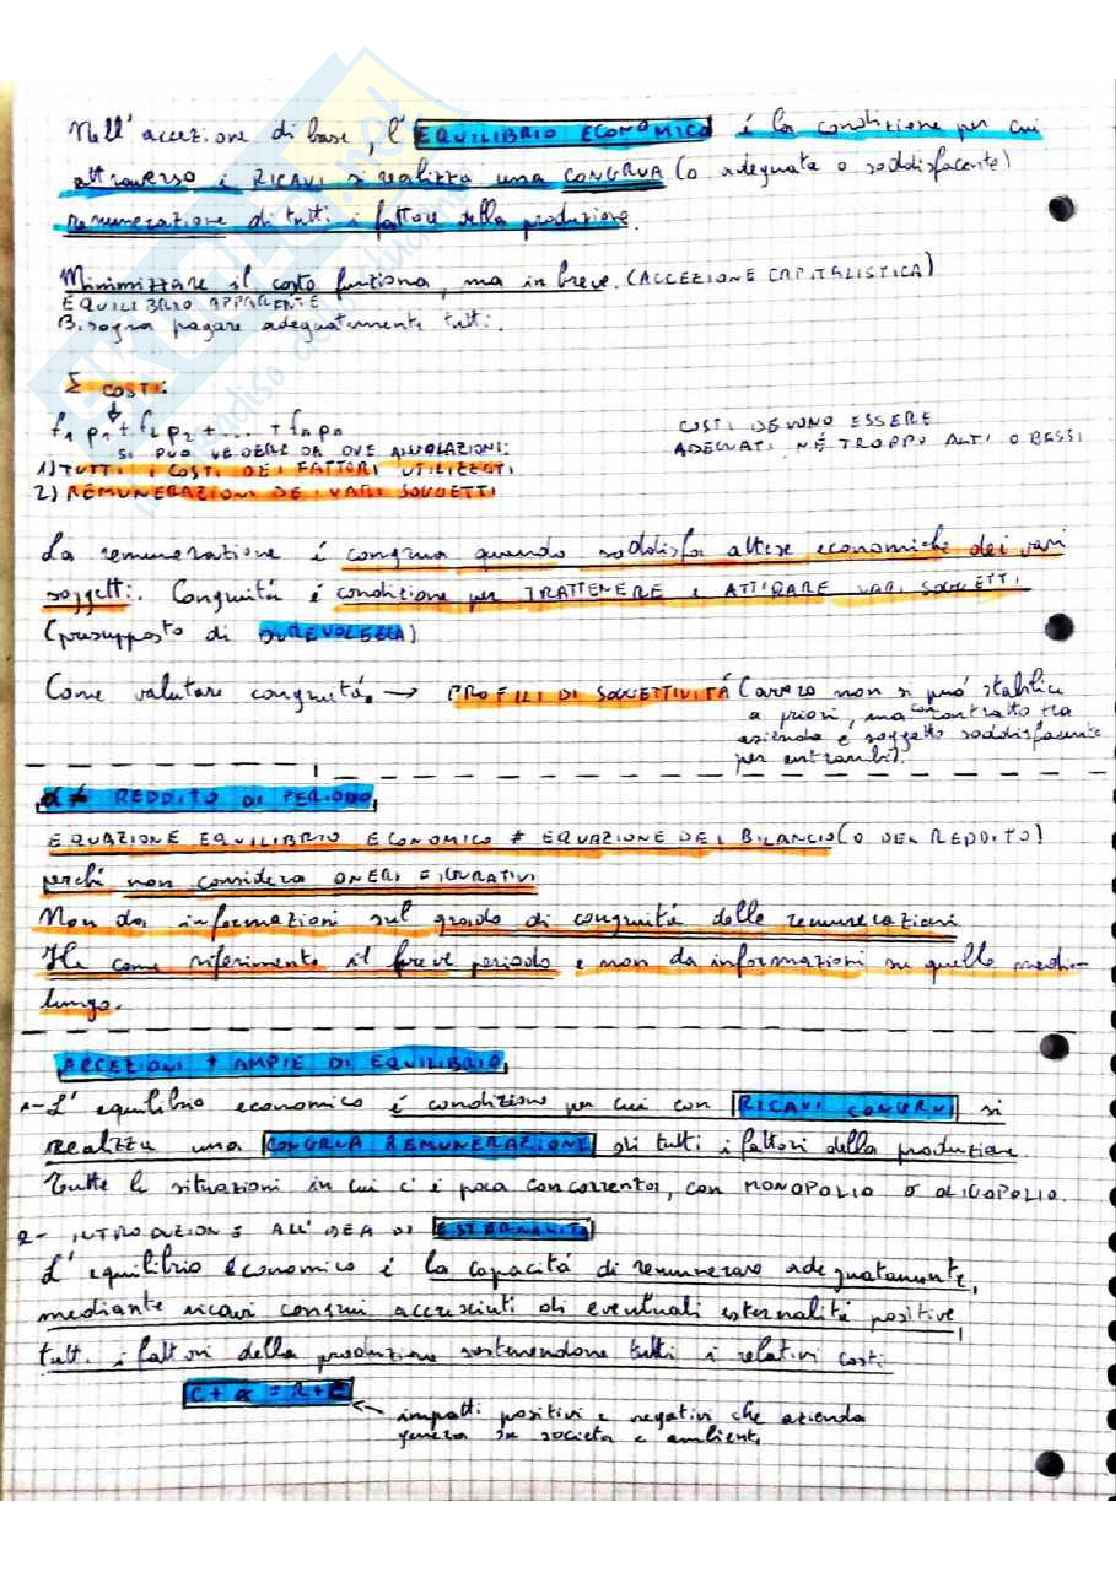 Nell'accezione di base, l'EQUILIBRIO ECONOMICO è la condizione per cui
attraverso i RICAVI si realizza una CONGRUA (o adeguata o soddisfacente)
remunerazione di tutti i fattori della produzione.
Minimizzare il costo funziona, ma in breve. (ACCEZIONE CAPITALISTICA)
EQUILIBRIO APPARENTE
Bisogna pagare adeguatamente tutti.
Σ COSTI:
↓
f1 p1 + f2 p2 + ... + fn pn
COSTI DEVONO ESSERE
ADEGUATI NÉ TROPPO ALTI O BASSI
SI PUÒ VEDERE DA DUE ANGOLAZIONI:
1) TUTTI I COSTI DEI FATTORI UTILIZZATI
2) REMUNERAZIONI DEI VARI SOGGETTI
La remunerazione è congrua quando soddisfa attese economiche dei vari
soggetti. Congruità è condizione per TRATTENERE e ATTIRARE VARI SOGGETTI
(presupposto di DUREVOLEZZA)
Come valutare congruità. → PROFILI DI SOGGETTIVITÀ (ovvero non si può stabilire
a priori, ma con contratto tra
azienda e soggetto soddisfacente
per entrambi).
α ≠ REDDITO DI PERIODO
EQUAZIONE EQUILIBRIO ECONOMICO ≠ EQUAZIONE DEL BILANCIO (O DEL REDDITO)
perché non considera ONERI FIGURATIVI
Non dà informazioni sul grado di congruità delle remunerazioni
Ha come riferimento il breve periodo e non dà informazioni su quello medio-
lungo.
ACCEZIONI + AMPIE DI EQUILIBRIO
1- L'equilibrio economico è condizione per cui con RICAVI CONGRUI si
realizza una CONGRUA REMUNERAZIONE di tutti i fattori della produzione.
Tutte le situazioni in cui c'è poca concorrenza, con MONOPOLIO o OLIGOPOLIO.
2- INTRODUZIONE ALL'IDEA DI ESTERNALITÀ
L'equilibrio economico è la capacità di remunerare adeguatamente,
mediante ricavi congrui accresciuti di eventuali esternalità positive,
tutti i fattori della produzione sostenendone tutti i relativi costi
C + α = R + E
← impatti positivi e negativi che azienda
genera su società e ambiente